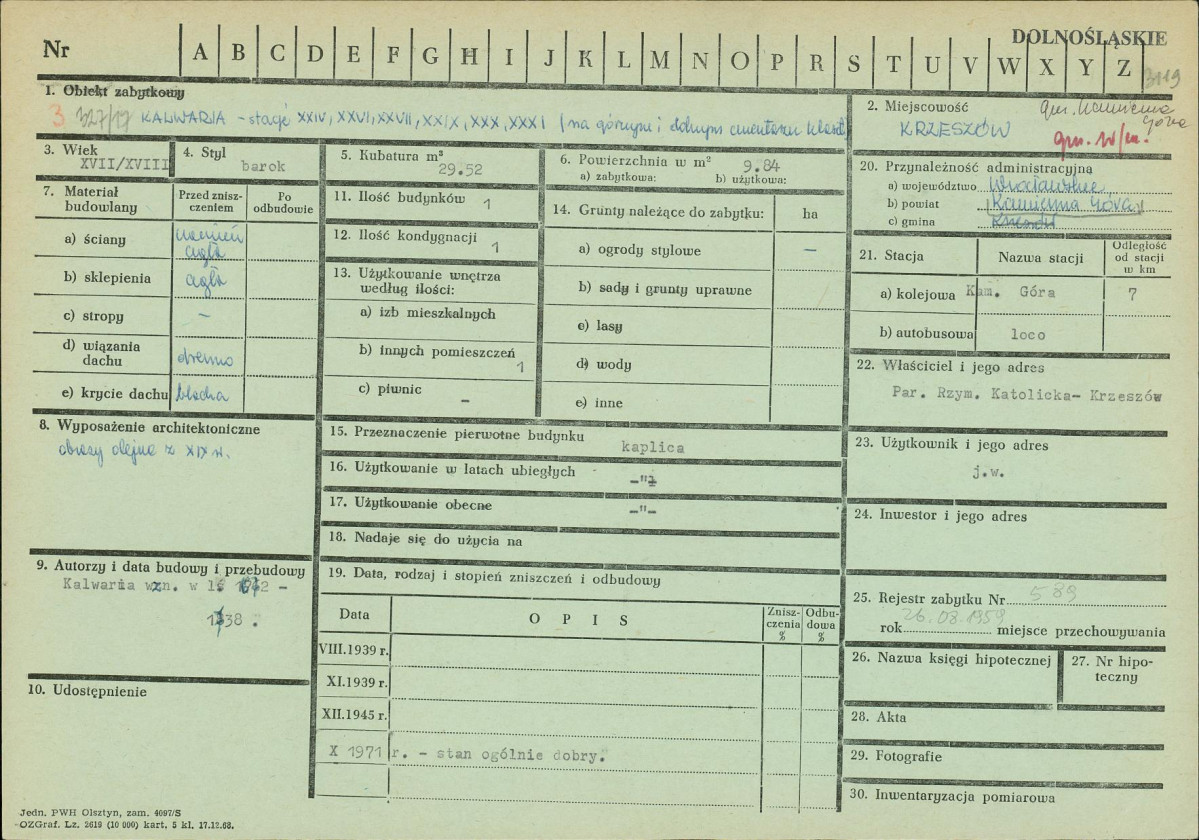 DOLNOŚLĄSKIE
Nr A B C D E F G H I J K L M N O P R S T U V W X Y Z
3119
1. Obiekt zabytkowy
3 327/17 KALWARIA - stacje XXIV, XXVI, XXVII, XXIX, XXX, XXXI (na górnym i dolnym cmentarzu klaszt.
2. Miejscowość gm. Kamienna Góra
KRZESZÓW
3. Wiek
XVII/XVIII
4. Styl
barok
5. Kubatura m³
29.52
6. Powierzchnia w m² 9.84
a) zabytkowa: b) użytkowa:
7. Materiał budowlany
Przed znisz-
czeniem
Po
odbudowie
a) ściany kamień
cegła
b) sklepienia cegła
c) stropy -
d) wiązania
dachu drewno
e) krycie dachu blacha
8. Wyposażenie architektoniczne
obrazy olejne z XIX w.
9. Autorzy i data budowy i przebudowy
Kalwaria wzn. w
38.
10. Udostępnienie
11. Ilość budynków 1
12. Ilość kondygnacji 1
13. Użytkowanie wnętrza
według ilości:
a) izb mieszkalnych
b) innych pomieszczeń 1
c) piwnic -
14. Grunty należące do zabytku: ha
a) ogrody stylowe -
b) sady i grunty uprawne
c) lasy
d) wody
e) inne
15. Przeznaczenie pierwotne budynku
kaplica
16. Użytkowanie w latach ubiegłych -"-
17. Użytkowanie obecne -"-
18. Nadaje się do użycia na
19. Data, rodzaj i stopień zniszczeń i odbudowy
Data O P I S Znisz-
czenia
% Odbu-
dowa
%
VIII.1939 r.
XI.1939 r.
XII.1945 r.
X 1971 r. - stan ogólnie dobry.
20. Przynależność administracyjna
a) województwo Wrocławskie
b) powiat Kamienna Góra
c) gmina Krzeszów
21. Stacja Nazwa stacji Odległość
od stacji
w km
a) kolejowa Kam. Góra 7
b) autobusowa loco
22. Właściciel i jego adres
Par. Rzym. Katolicka- Krzeszów
23. Użytkownik i jego adres
j.w.
24. Inwestor i jego adres
25. Rejestr zabytku Nr 589
rok 26.08.1959 miejsce przechowywania
26. Nazwa księgi hipotecznej
27. Nr hipo-
teczny
28. Akta
29. Fotografie
30. Inwentaryzacja pomiarowa
Jedn. PWH Olsztyn, zam. 4097/S
OZGraf. Lz. 2619 (10 000) kart. 5 kl. 17.12.68.